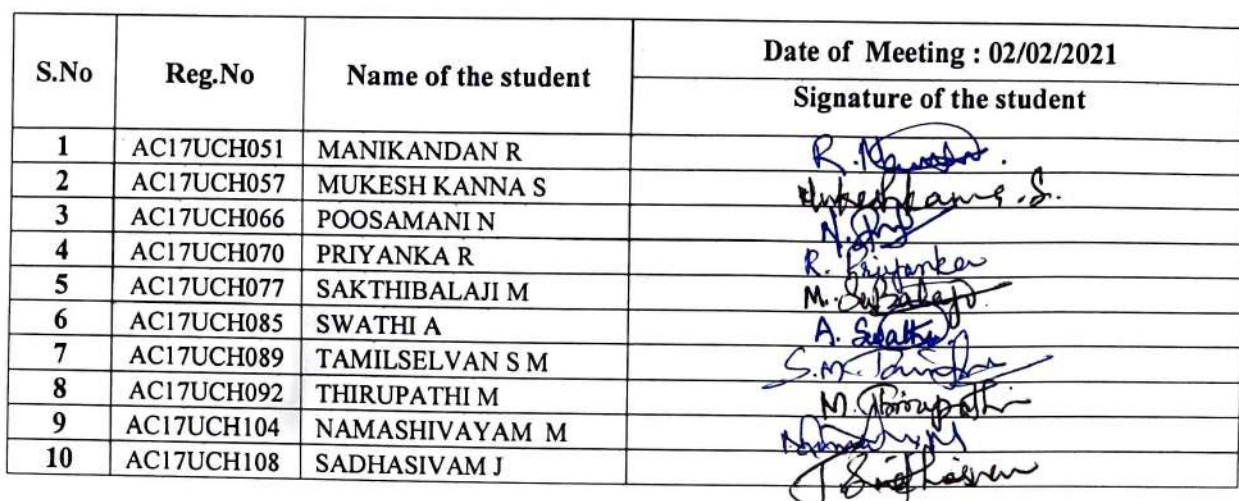 S.No Reg.No Name of the student Date of Meeting : 02/02/2021
Signature of the student
1 AC17UCH051 MANIKANDAN R R.
2 AC17UCH057 MUKESH KANNA S Mukesh kanna .S.
3 AC17UCH066 POOSAMANI N N.
4 AC17UCH070 PRIYANKA R R. Priyanka
5 AC17UCH077 SAKTHIBALAJI M M.
6 AC17UCH085 SWATHI A A. Swathi
7 AC17UCH089 TAMILSELVAN S M S.M.
8 AC17UCH092 THIRUPATHI M M. Thirupathi
9 AC17UCH104 NAMASHIVAYAM M
10 AC17UCH108 SADHASIVAM J